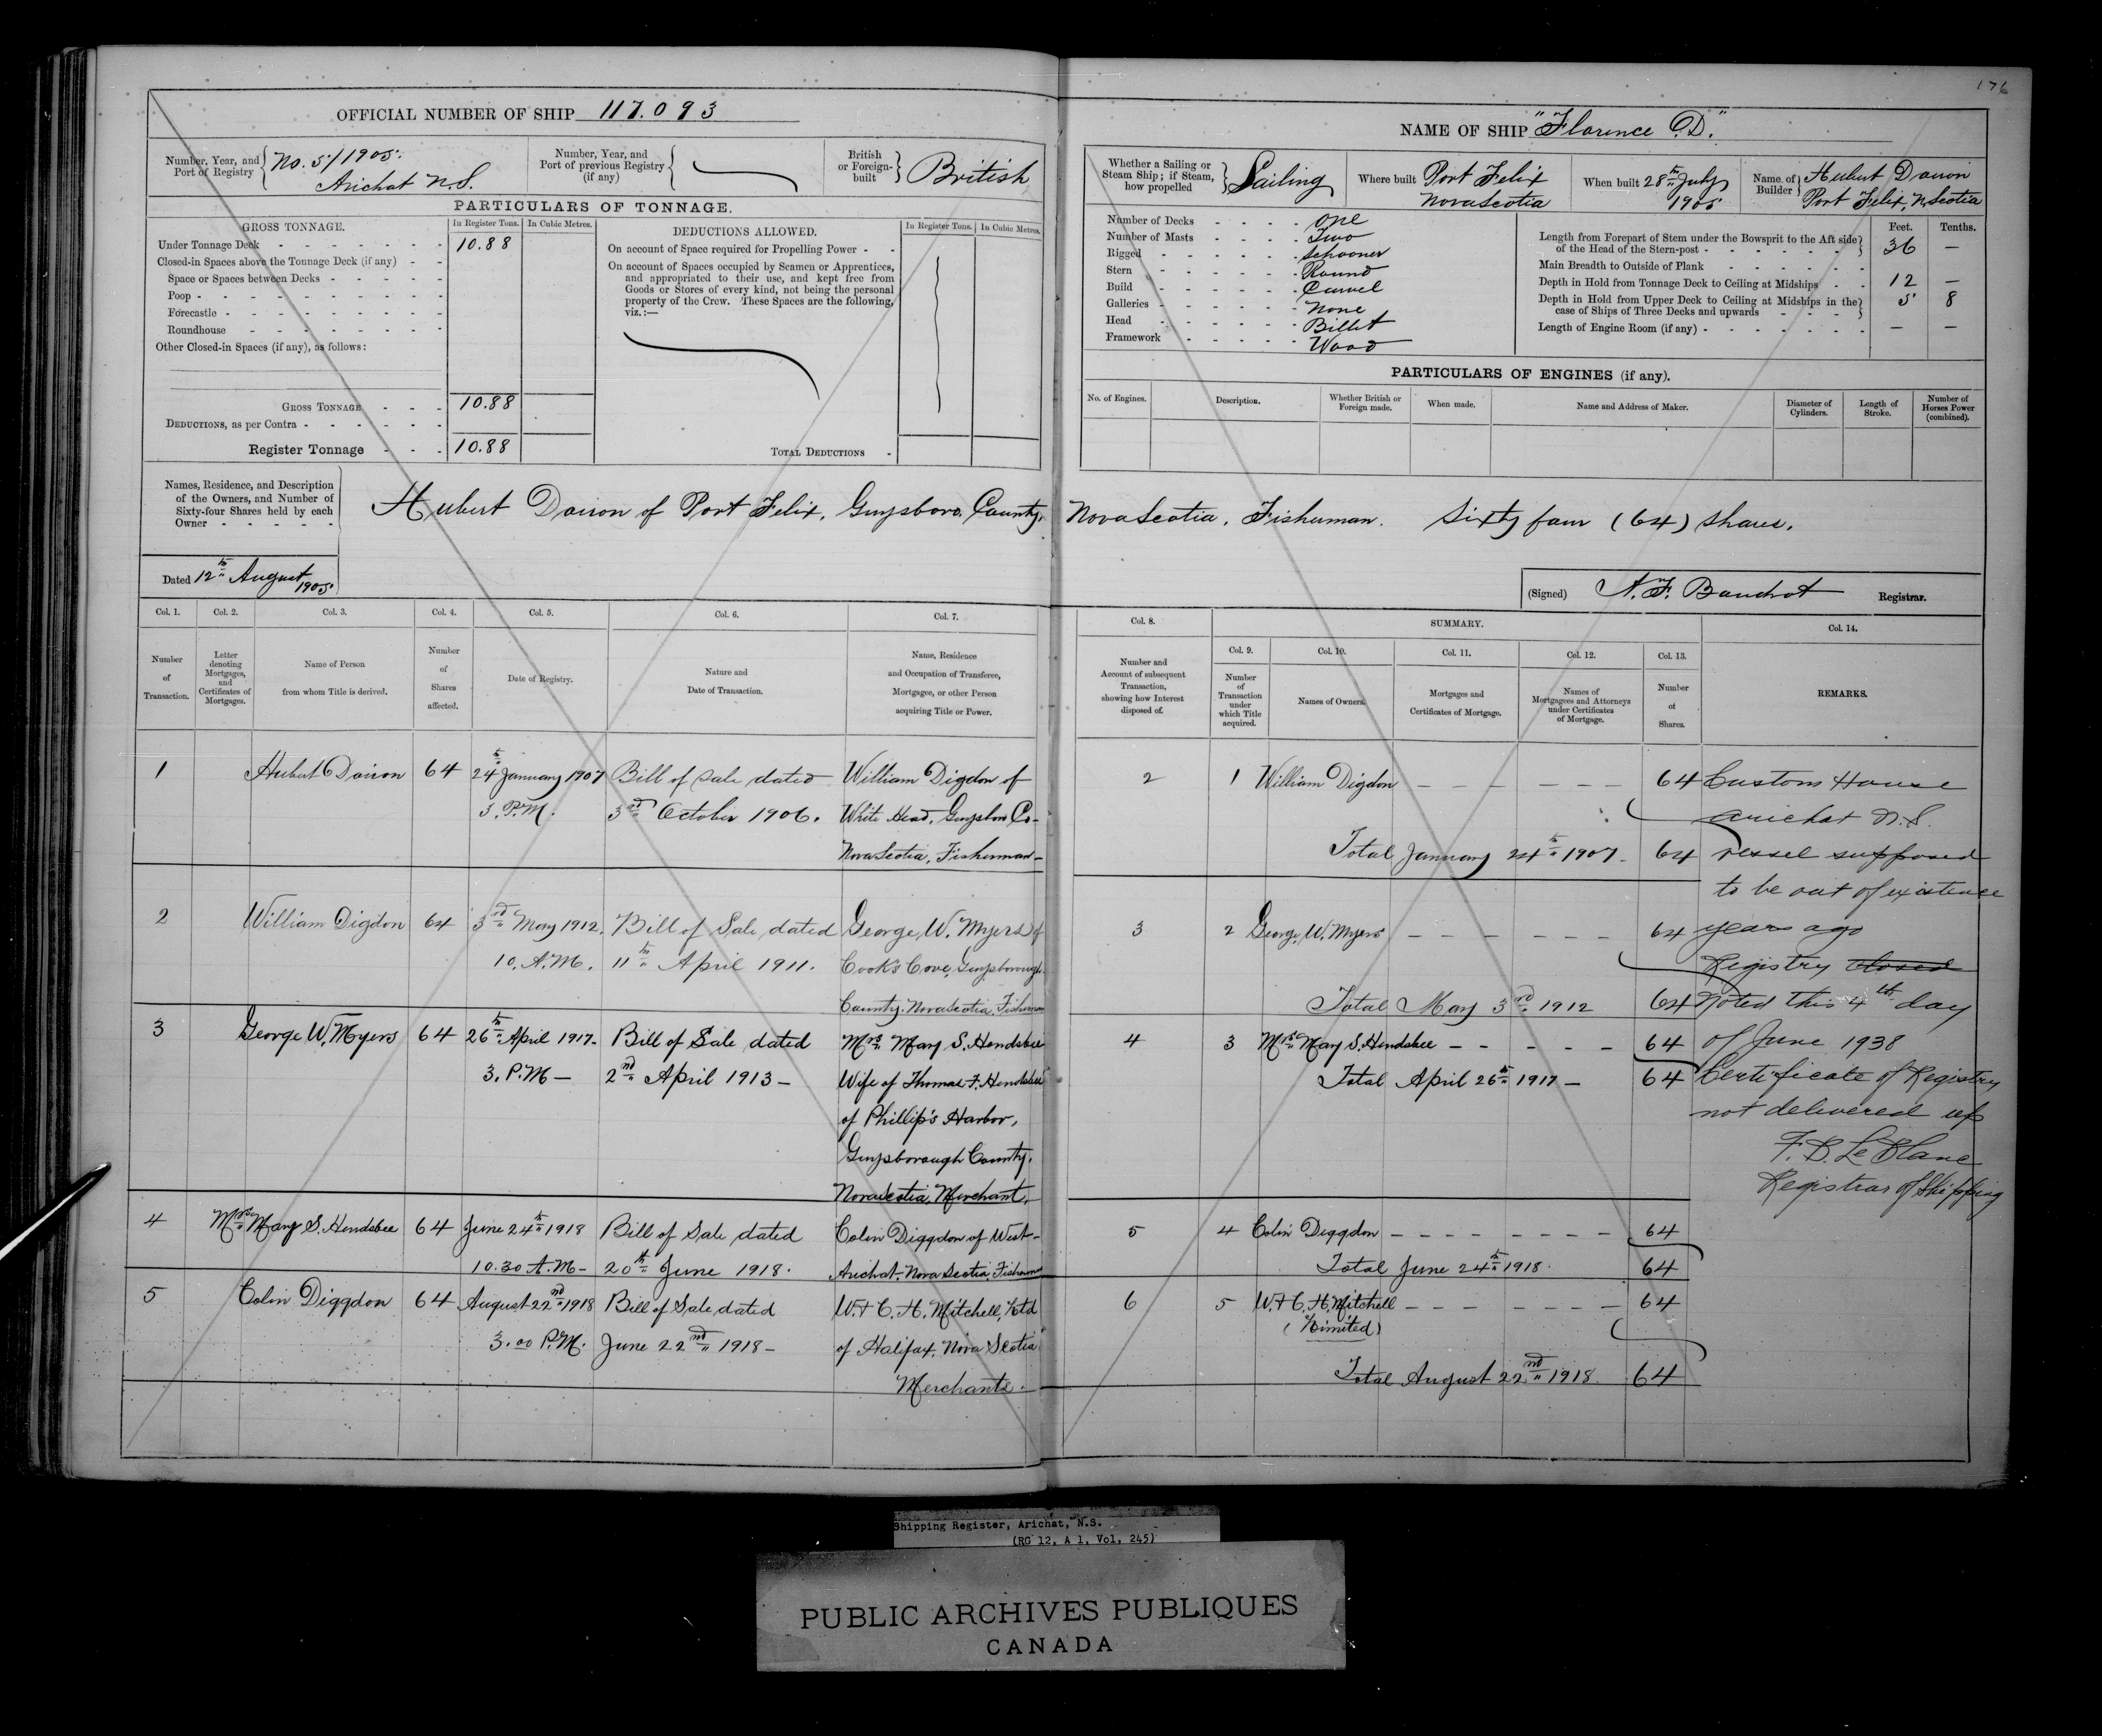 176
OFFICIAL NUMBER OF SHIP 117.093
Number, Year, and Port of Registry No. 5/1905. Arichat N.S.
Number, Year, and Port of previous Registry (if any)
British or Foreign-built British
PARTICULARS OF TONNAGE.
GROSS TONNAGE.
In Register Tons. In Cubic Metres.
Under Tonnage Deck 10.88
Closed-in Spaces above the Tonnage Deck (if any)
Space or Spaces between Decks
Poop
Forecastle
Roundhouse
Other Closed-in Spaces (if any), as follows:
GROSS TONNAGE 10.88
DEDUCTIONS, as per Contra
Register Tonnage 10.88
DEDUCTIONS ALLOWED.
In Register Tons. In Cubic Metres.
On account of Space required for Propelling Power
On account of Spaces occupied by Seamen or Apprentices,
and appropriated to their use, and kept free from
Goods or Stores of every kind, not being the personal
property of the Crew. These Spaces are the following,
viz.:—
TOTAL DEDUCTIONS
NAME OF SHIP "Florence D."
Whether a Sailing or Steam Ship; if Steam, how propelled Sailing
Where built Port Felix Nova Scotia
When built 28th July 1905
Name of Builder Hubert Port Felix, N. Scotia
Number of Decks One
Number of Masts Two
Rigged Schooner
Stern Round
Build Carvel
Galleries None
Head Billet
Framework Wood
Feet. Tenths.
Length from Forepart of Stem under the Bowsprit to the Aft side of the Head of the Stern-post 36 —
Main Breadth to Outside of Plank
Depth in Hold from Tonnage Deck to Ceiling at Midships 12 —
Depth in Hold from Upper Deck to Ceiling at Midships in the case of Ships of Three Decks and upwards 5 8
Length of Engine Room (if any) — —
PARTICULARS OF ENGINES (if any).
No. of Engines. Description. Whether British or Foreign made. When made. Name and Address of Maker. Diameter of Cylinders. Length of Stroke. Number of Horses Power (combined).
Names, Residence, and Description
of the Owners, and Number of
Sixty-four Shares held by each
Owner
Hubert of Port Felix, Guysboro County, Nova Scotia, Fisherman. Sixty four (64) shares.
Dated 12th August 1905
(Signed) Registrar.
Col. 1. Col. 2. Col. 3. Col. 4. Col. 5. Col. 6. Col. 7.
Number of Transaction.
Letter denoting Mortgages, and Certificates of Mortgages.
Name of Person from whom Title is derived.
Number of Shares affected.
Date of Registry.
Nature and Date of Transaction.
Name, Residence and Occupation of Transferee, Mortgagee, or other Person acquiring Title or Power.
Col. 8. SUMMARY. Col. 14.
Col. 9. Col. 10. Col. 11. Col. 12. Col. 13.
Number and Account of subsequent Transaction, showing how Interest disposed of.
Number of Transaction under which Title acquired.
Names of Owners.
Mortgages and Certificates of Mortgage.
Names of Mortgagees and Attorneys under Certificates of Mortgage.
Number of Shares.
REMARKS.
1 Hubert 64 24th January 1907 Bill of Sale dated William Digdon of
3. P.M. 3rd October 1906. White Head, Guysboro Co-
Nova Scotia, Fisherman—
2 William Digdon 64 3rd May 1912. Bill of Sale dated George W. Myers of
10. A.M. 11th April 1911. Cook's Cove, Guysborough
County, Nova Scotia, Fisherman
3 George W. Myers 64 26th April 1917- Bill of Sale dated Mrs. Mary S. Hendsbee
3. P.M— 2nd April 1913— Wife of Thomas F. Hendsbee
of Phillip's Harbor,
Guysborough County,
Nova Scotia, Merchant.
4 Mrs. Mary S. Hendsbee 64 June 24th 1918 Bill of Sale dated Colin Diggdon of West-
10.30 A.M- 20th June 1918. Arichat, Nova Scotia, Fisherman
5 Colin Diggdon 64 August 22nd 1918 Bill of Sale dated W. & C. H. Mitchell, Ltd
3.00 P.M. June 22nd 1918- of Halifax, Nova Scotia
Merchants.
2 1 William Digdon 64
Total January 24th 1907- 64
3 2 George W. Myers 64
Total May 3rd 1912 64
4 3 Mrs. Mary S. Hendsbee 64
Total April 26th 1917— 64
5 4 Colin Diggdon 64
Total June 24th 1918. 64
6 5 W. & C. H. Mitchell 64
(Limited)
Total August 22nd 1918. 64
Customs House
Arichat N.S.
Vessel supposed
to be out of existence
years ago
Registry closed
Noted this 4th day
of June 1938
Certificate of Registry
not delivered up
F. D. LeBlanc
Registrar of Shipping
Shipping Register, Arichat, N.S.
(RG 12, A 1, Vol, 245)
PUBLIC ARCHIVES PUBLIQUES
CANADA